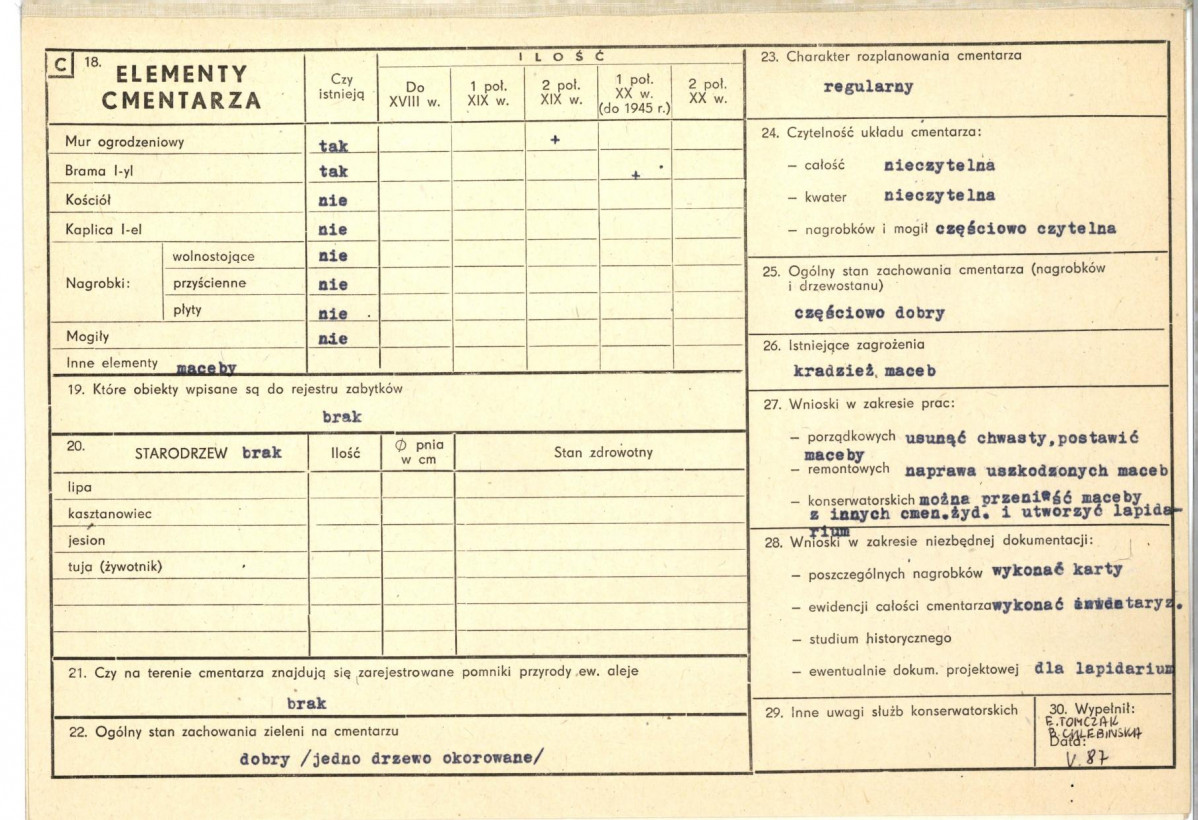 C 18. ELEMENTY CMENTARZA
Czy istnieją
ILOŚĆ
Do XVIII w.
1 poł. XIX w.
2 poł. XIX w.
1 poł. XX w. (do 1945 r.)
2 poł. XX w.
Mur ogrodzeniowy tak +
Brama I-yl tak +
Kościół nie
Kaplica I-el nie
Nagrobki:
wolnostojące nie
przyścienne nie
płyty nie
Mogiły nie
Inne elementy maceby
19. Które obiekty wpisane są do rejestru zabytków
brak
20. STARODRZEW brak
Ilość
Ø pnia w cm
Stan zdrowotny
lipa
kasztanowiec
jesion
tuja (żywotnik)
21. Czy na terenie cmentarza znajdują się zarejestrowane pomniki przyrody ew. aleje
brak
22. Ogólny stan zachowania zieleni na cmentarzu
dobry /jedno drzewo okorowane/
23. Charakter rozplanowania cmentarza
regularny
24. Czytelność układu cmentarza:
– całość nieczytelna
– kwater nieczytelna
– nagrobków i mogił częściowo czytelna
25. Ogólny stan zachowania cmentarza (nagrobków
i drzewostanu)
częściowo dobry
26. Istniejące zagrożenia
kradzież maceb
27. Wnioski w zakresie prac:
– porządkowych usunąć chwasty,postawić
maceby
– remontowych naprawa uszkodzonych maceb
– konserwatorskich można przenieść maceby
z innych cmen.żyd. i utworzyć lapida-
rium
28. Wnioski w zakresie niezbędnej dokumentacji:
– poszczególnych nagrobków wykonać karty
– ewidencji całości cmentarza wykonać inwentaryz.
– studium historycznego
– ewentualnie dokum. projektowej dla lapidarium
29. Inne uwagi służb konserwatorskich
30. Wypełnił:
E. TOMCZAK
B.
Data:
V. 87